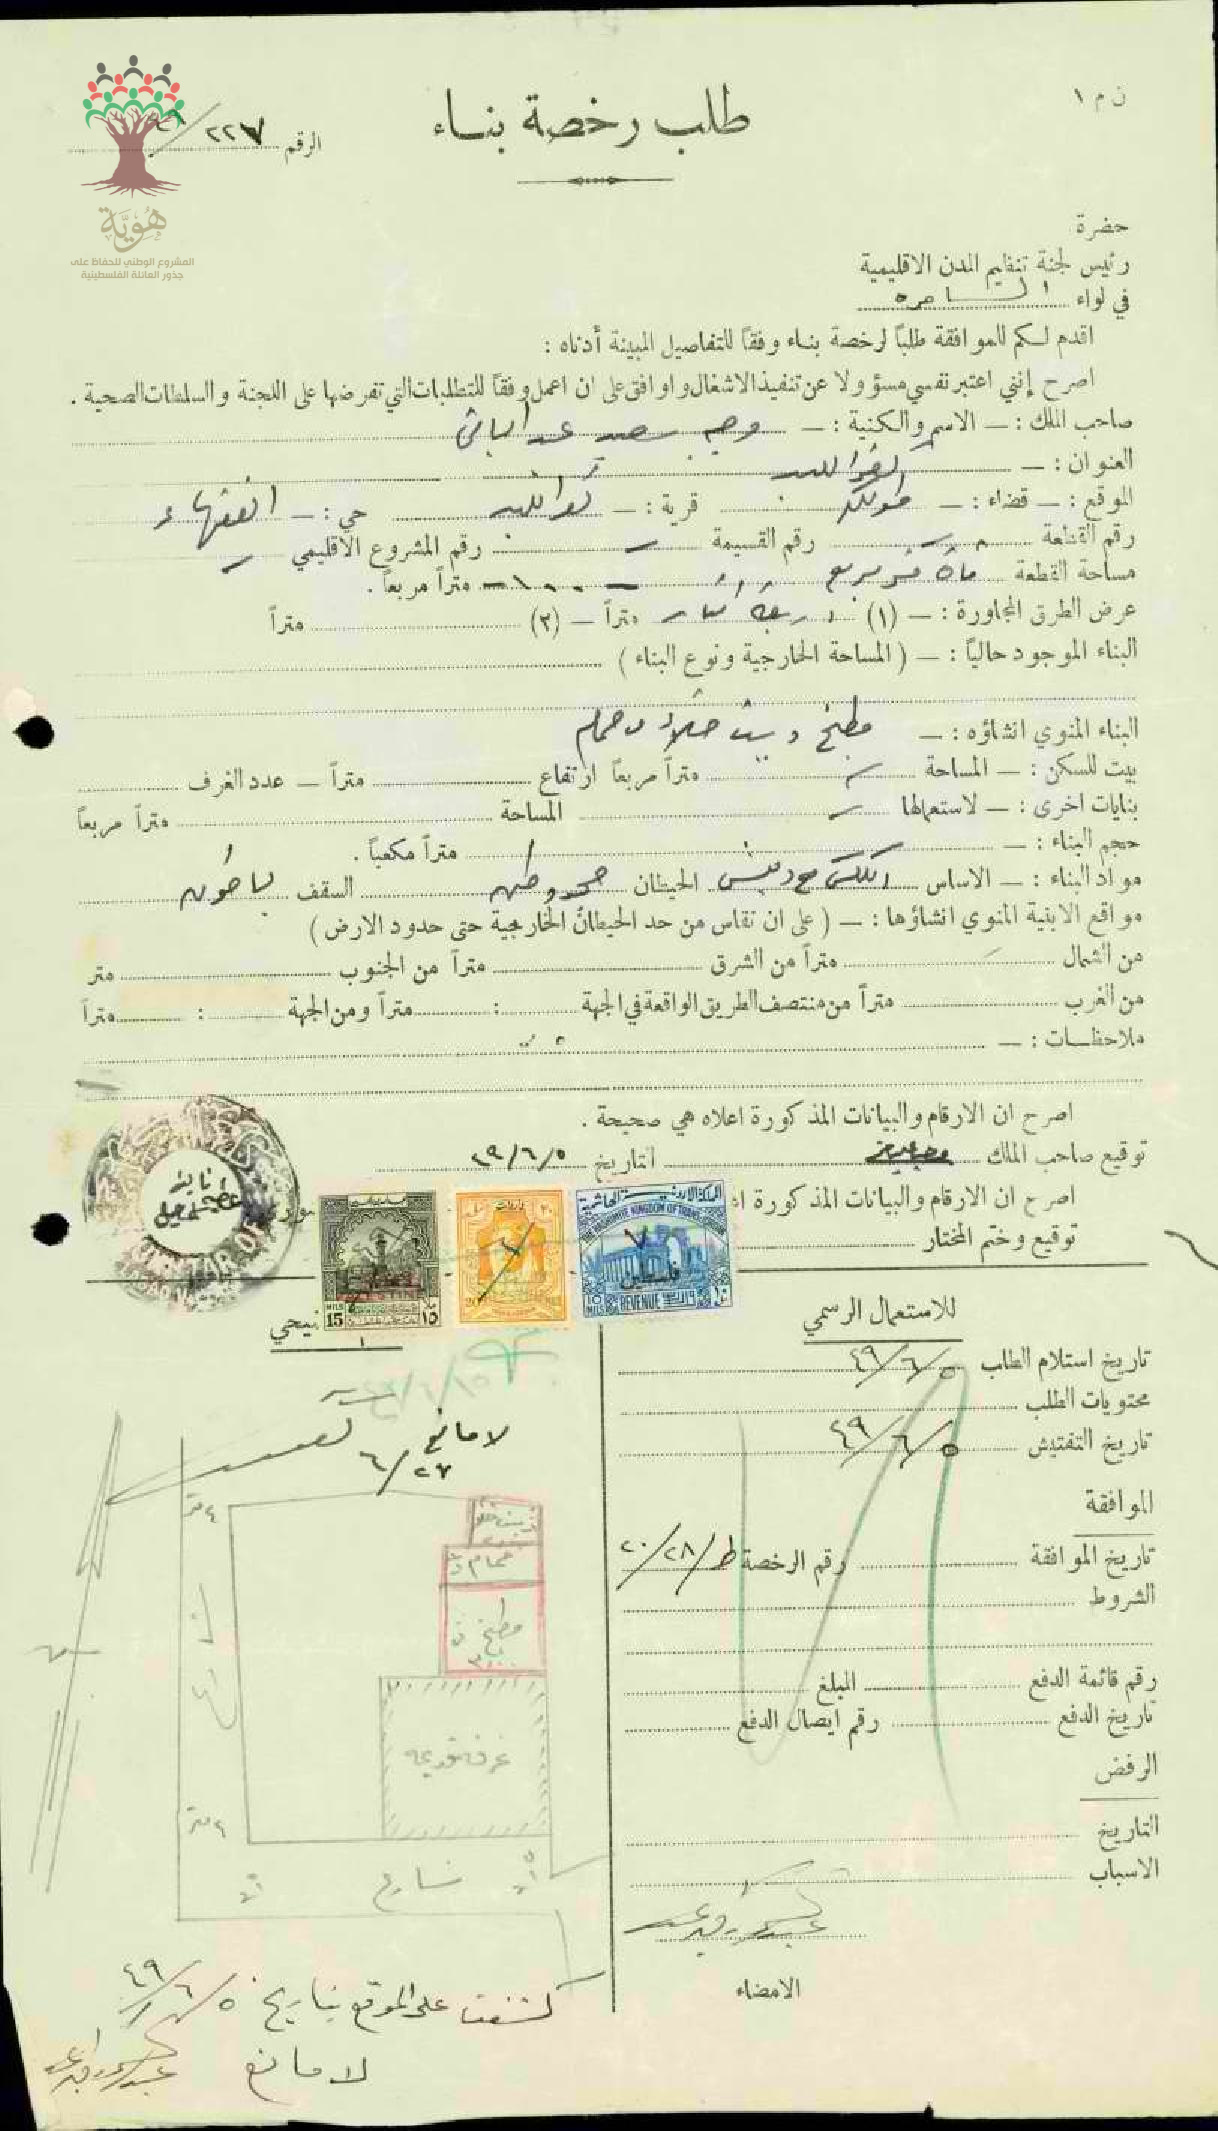 ن م ١
طلب رخصة بناء
الرقم ٢٢٧
هُوِيَّة
المشروع الوطني للحفاظ على
جذور العائلة الفلسطينية
حضرة
رئيس لجنة تنظيم المدن الاقليمية
في لواء السامره
اقدم لكم للموافقة طلباً لرخصة بناء وفقاً للتفاصيل المبينة أدناه :
اصرح إنني اعتبر نفسي مسؤولا عن تنفيذ الاشغال واوافق على ان اعمل وفقاً للمتطلبات التي تفرضها على اللجنة والسلطات الصحية .
صاحب الملك : — الاسم والكنية : — وجيه سعيد عبد الباقي
العنوان : —
الموقع : — قضاء : — قرية : — حي : — الفقهاء
رقم القطعة رقم القسيمة رقم المشروع الاقليمي
مساحة القطعة ماة متر مربع — ١٠٠ — متراً مربعاً .
عرض الطرق المجاورة : — (١) اربعة امتار متراً — (٢) متراً
البناء الموجود حالياً : — ( المساحة الخارجية ونوع البناء )
البناء المنوي انشاؤه : — مطبخ وبيت خلاء وحمام
بيت للسكن : — المساحة متراً مربعاً ارتفاع متراً — عدد الغرف
بنايات اخرى : — لاستعمالها المساحة متراً مربعاً
حجم البناء : — متراً مكعباً .
مواد البناء : — الاساس الحيطان حجر وطين السقف باطون
مواقع الابنية المنوي انشاؤها : — ( على ان تقاس من حد الحيطان الخارجية حتى حدود الارض )
من الشمال متراً من الشرق متراً من الجنوب متر
من الغرب متراً من منتصف الطريق الواقعة في الجهة : متراً ومن الجهة : متراً
ملاحظات : —
اصرح ان الارقام والبيانات المذكورة اعلاه هي صحيحة .
توقيع صاحب الملك التاريخ ٤٩/٦/٥
اصرح ان الارقام والبيانات المذكورة
توقيع وختم المختار
MUKHTAR OF
فلسطين
PALESTINE
MILS 15 ١٥
20
المملكة الاردنية الهاشمية
THE HASHEMITE KINGDOM OF TRANS-JORDAN
فلسطين
10 MILS REVENUE
للاستعمال الرسمي
تاريخ استلام الطلب ٤٩/٦/٥
محتويات الطلب
تاريخ التفتيش ٤٩/٦/٥
الموافقة
تاريخ الموافقة رقم الرخصة ط/٢٠/٢٨
الشروط
رقم قائمة الدفع المبلغ
تاريخ الدفع رقم ايصال الدفع
الرفض
التاريخ
الاسباب
الامضاء
لا مانع
٦/٢٧
حمام
مطبخ
غرفة قديمه
شارع
شارع
كشفت على الموقع بتاريخ ٤٩/٦/٥
لا مانع